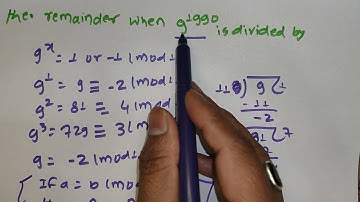 the remainder when 9^1990 is divided by
9^x = 1 or -1 (mod
9^1 = 9 ≡ -2 (mod
9^2 = 81 ≡ 4 (mod
9^3 = 729 ≡ 3 (mod
9 = -2 (mod
If a = b (mod
9
-11
-2
7